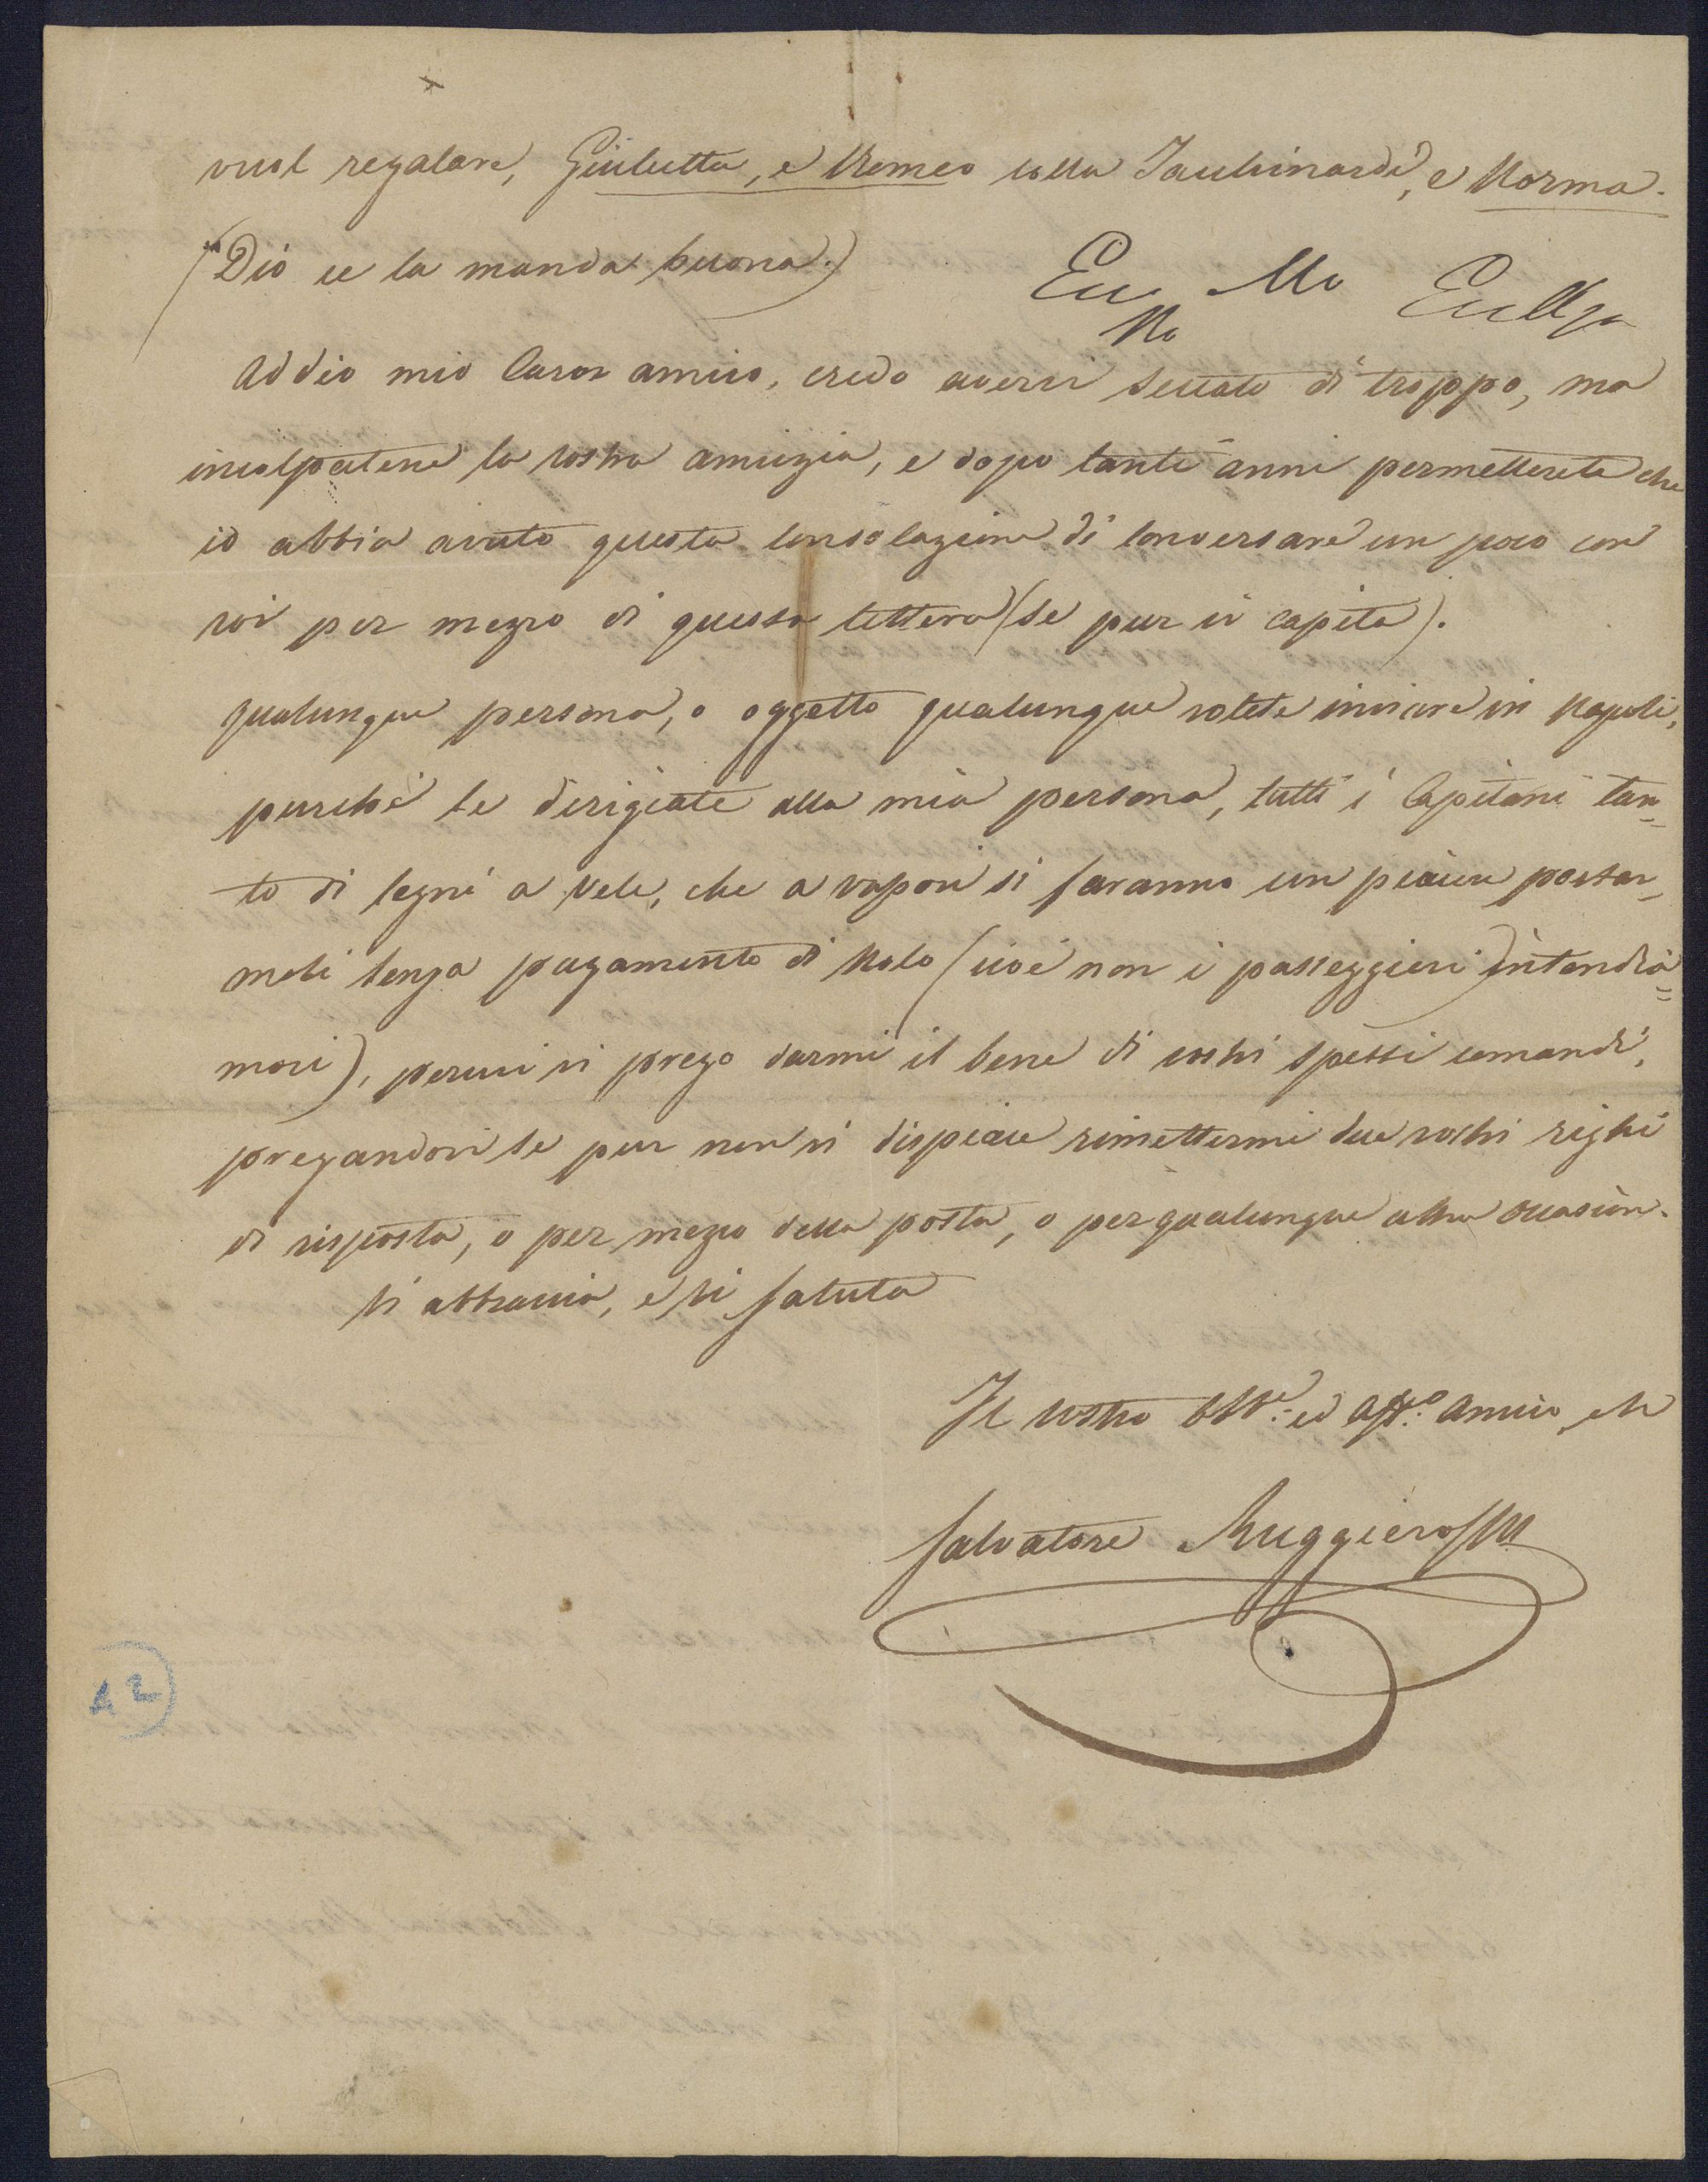 vuol regalare, Giulietta, e Romeo colla Tacchinardi, e Norma.
(Dio ce la manda buona.)
Addio mio Caro amico, credo avervi seccato di troppo, ma
incolpatene la vostra amicizia, e dopo tanti anni permetterete che
io abbia avuto questa consolazione di conversare un poco con
voi per mezzo di questa lettera (se pur vi capita).
qualunque persona, o oggetto qualunque volete inviare in Napoli,
purchè le dirigiate alla mia persona, tutti i Capitani tan-
to di legni a vele, che a vapori si faranno un piacere portar-
meli senza pagamento di Nolo (cioè non i passeggieri) intendia=
moci), percui vi prego darmi il bene di vostri spessi comandi,
pregandovi se pur non vi dispiace rimettermi due vostri righi
di risposta, o per mezzo della posta, o per qualunque altra occasion.
Vi abbraccia, e vi saluta
Il vostro ed aff.o amico
Salvatore Ruggiero
42